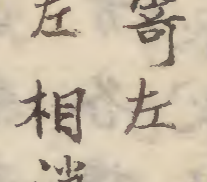 寄左
左相